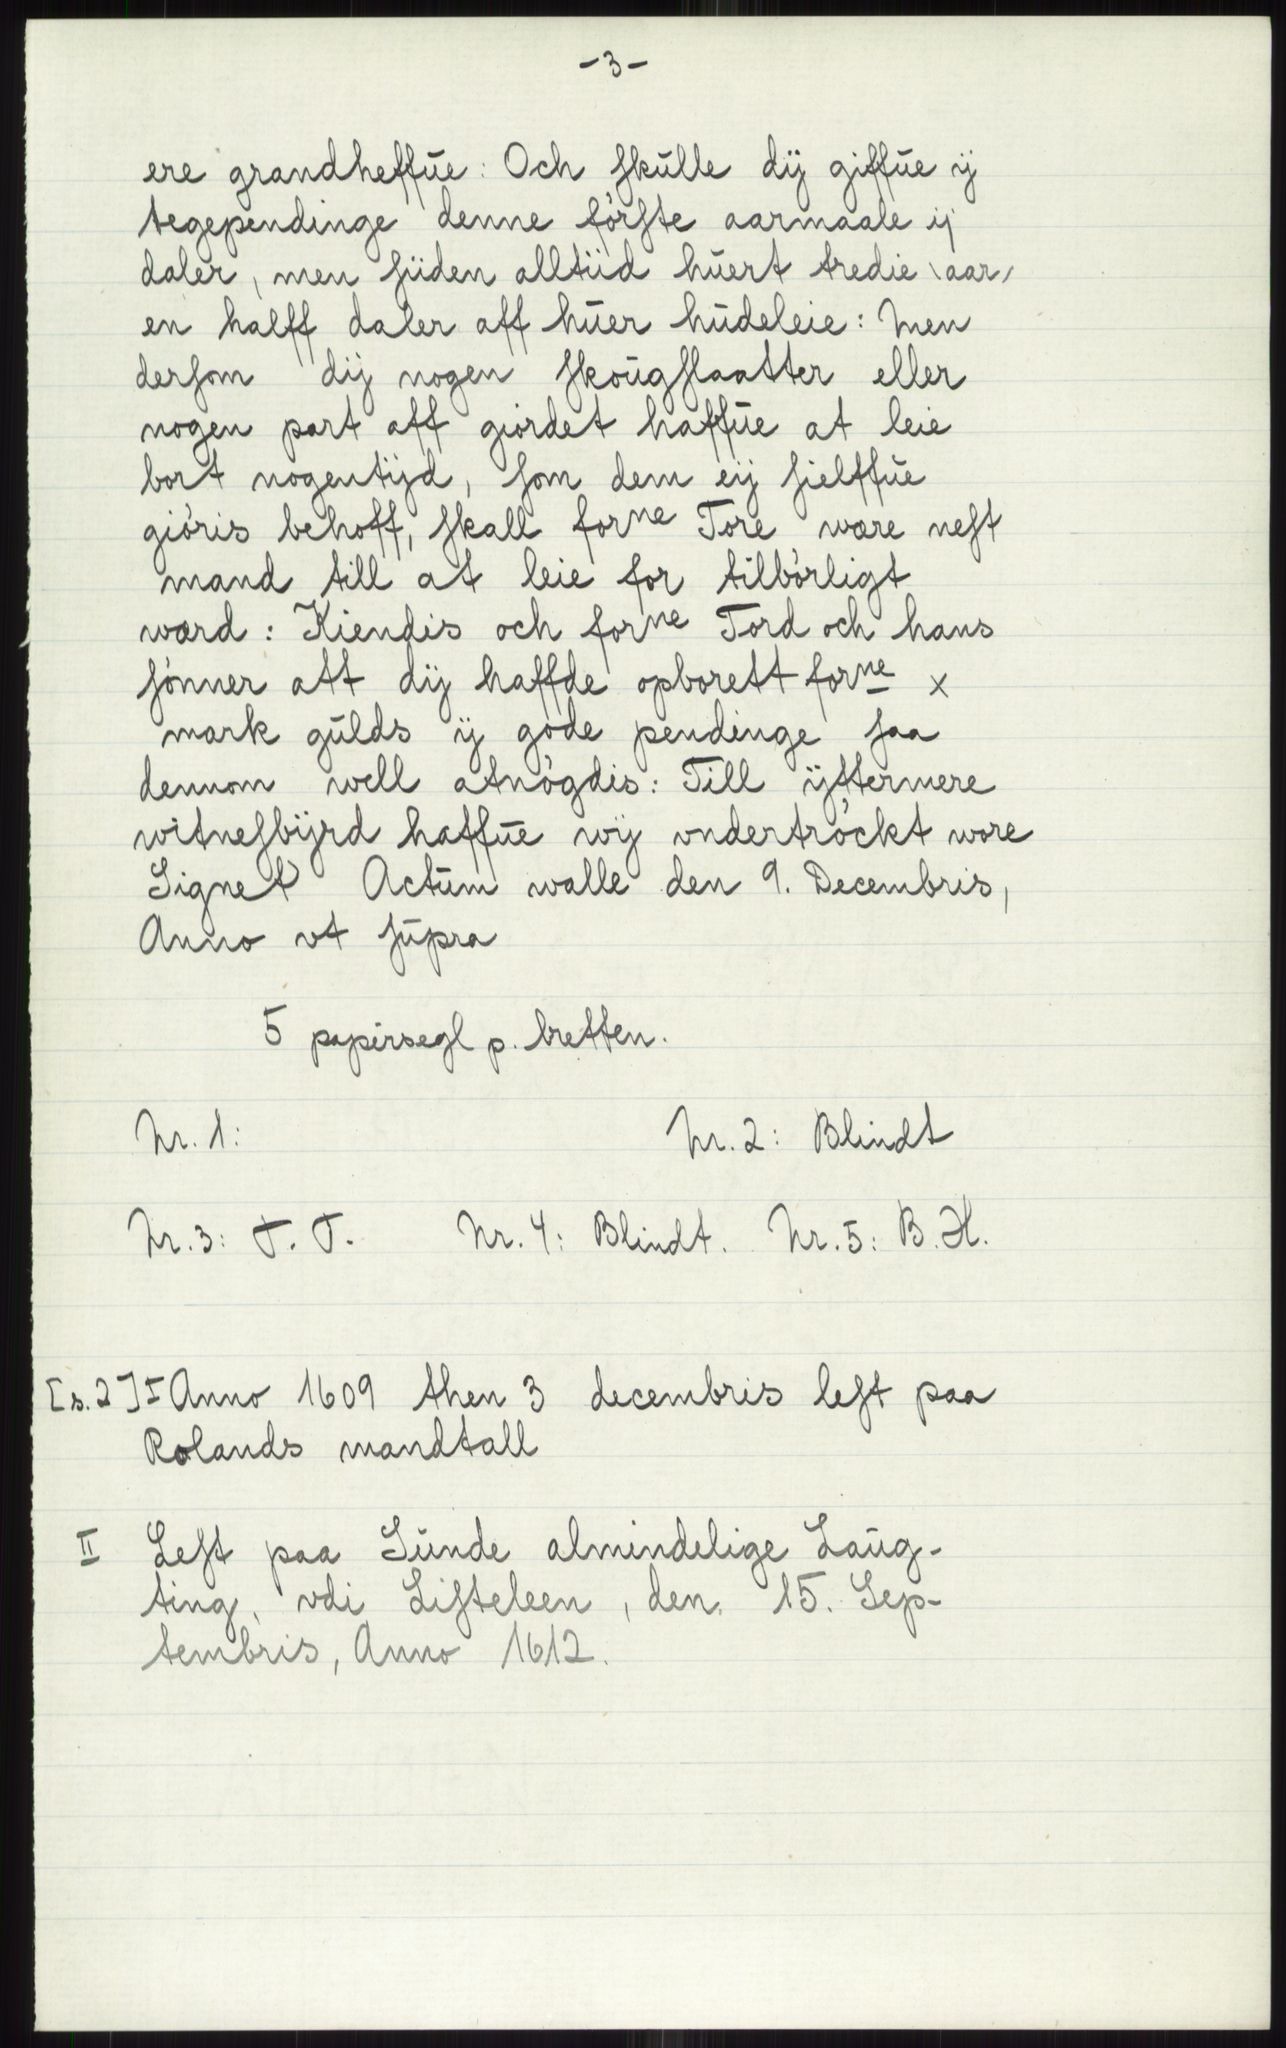 -3-
ere grandheffue: Och skulle dÿ giffue ÿ
tegependinge denne første aarmaale ij
daler, men siiden alltiid huert tredie \aar/
en halff daler aff huer hudeleie: Men
dersom dij nogen skougslaatter eller
nogen part aff giordet haffue at leie
bort nogentijd, som dem eij sielffue
giøris behoff, skall forne Tore være nest
mand till at leie for tilbørligt
værd: Kiendis och forne Tord och hans
sønner att dij haffde opborett forne x
mark gulds ÿ gode pendinge saa
dennom well atnøgdis: Till ÿttermere
witnesbijrd haffue wij vndertrøckt wore
Signet Actum walle den 9. Decembris,
Anno vt supra
5 papirsegl p. bretten.
Nr. 1: Nr. 2: Blindt
Nr. 3: T. T. Nr. 4: Blindt. Nr. 5: B. H.
[s. 2] I Anno 1609 then 3 decembris lest paa
Rolands mandtall
II Lest paa Sunde almindelige Laug-
ting, vdi Listeleen, den 15. Sep-
tembris, Anno 1612.